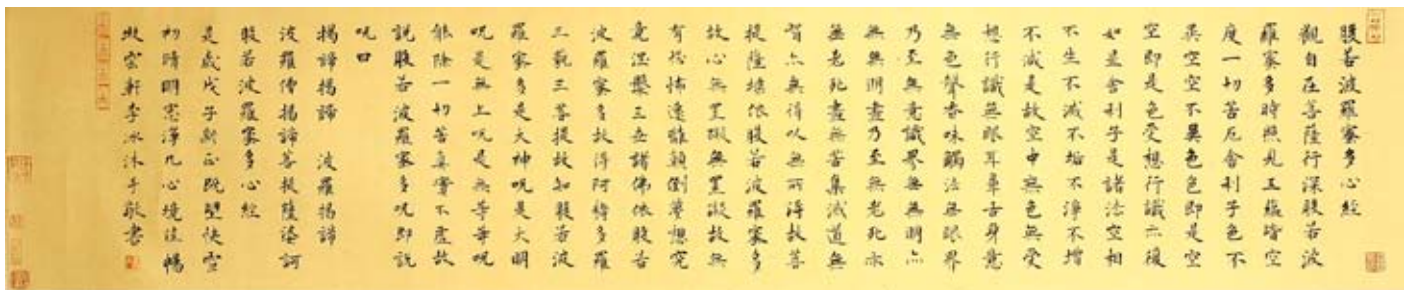 般若波羅蜜多心經
觀自在菩薩行深般若波
羅蜜多時照見五蘊皆空
度一切苦厄舍利子色不
異空空不異色色即是空
空即是色受想行識亦復
如是舍利子是諸法空相
不生不滅不垢不淨不增
不減是故空中無色無受
想行識無眼耳鼻舌身意
無色聲香味觸法無眼界
乃至無意識界無無明亦
無無明盡乃至無老死亦
無老死盡無苦集滅道無
智亦無得以無所得故菩
提薩埵依般若波羅蜜多
故心無罣礙無罣礙故無
有恐怖遠離顛倒夢想究
竟涅槃三世諸佛依般若
波羅蜜多故得阿耨多羅
三藐三菩提故知般若波
羅蜜多是大神呪是大明
呪是無上呪是無等等呪
能除一切苦真實不虛故
說般若波羅蜜多呪即說
呪曰
揭諦揭諦　波羅揭諦
波羅僧揭諦菩提薩婆訶
般若波羅蜜多心經
是歲戊子新正既望快雪
初晴明窗淨几心境佳暢
雲軒李冰沐手敬書